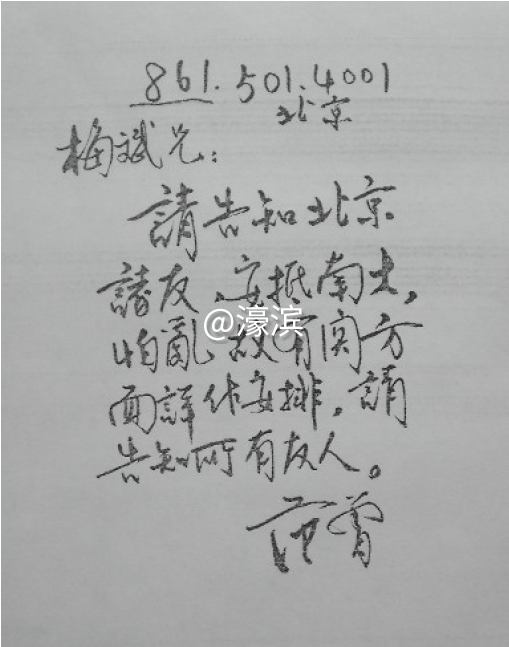 861.501.4001
北京
梅斌兄：
請告知北京
諸友，安抵南大，
@濠滨
怕亂，故有関方
面詳作安排，請
告知所有友人。
范曾